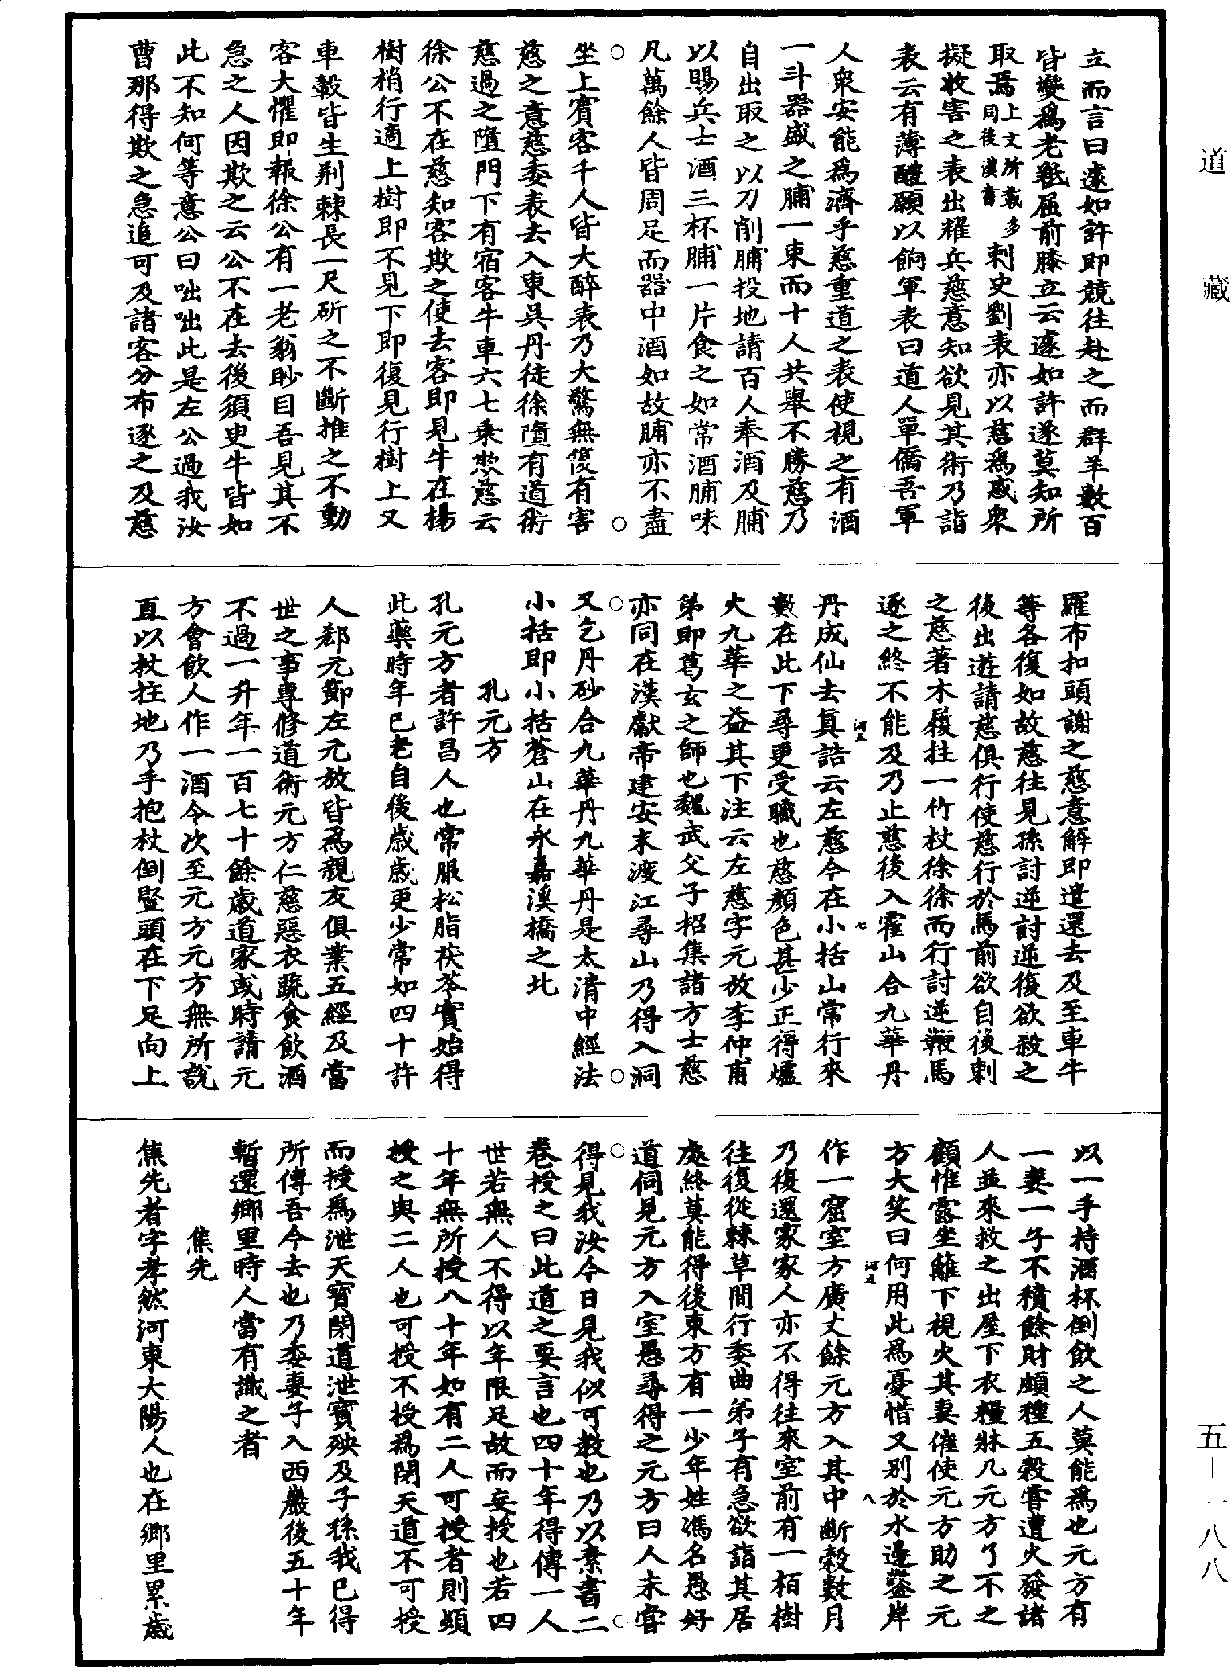 立而言曰遽如許即競往赴之而群羊數百
皆變爲老羝屈前膝立云遽如許遂莫知所
取焉上文所載多同後漢書刺史劉表亦以慈爲惑衆
擬收害之表出耀兵慈意知欲見其術乃詣
表云有薄醴願以餉軍表曰道人單僑吾軍
人衆安能爲濟乎慈重道之表使視之有酒
一斗器盛之脯一束而十人共舉不勝慈乃
自出取之以刀削脯投地請百人奉酒及脯
以賜兵士酒三杯脯一片食之如常酒脯味
凡萬餘人皆周足而器中酒如故脯亦不盡
坐上賓客千人皆大醉表乃大驚無復有害
慈之意慈委表去入東吳丹徒徐隨有道術
慈過之隨門下有宿客牛車六七乘欺慈云
徐公不在慈知客欺之便去客即見牛在楊
樹梢行適上樹即不見下即復見行樹上又
車轂皆生荆棘長一尺斫之不斷推之不動
客大懼即報徐公有一老翁眇目吾見其不
急之人因欺之云公不在去後須臾牛皆如
此不知何等意公曰咄咄此是左公過我汝
曹那得欺之急追可及諸客分布逐之及慈
羅布扣頭謝之慈意解即遣還去及至車牛
等各復如故慈往見孫討逆討逆復欲殺之
後出遊請慈俱行使慈行於馬前欲自後刺
之慈著木履拄一竹杖徐徐而行討逆鞭馬
逐之終不能及乃止慈後入霍山合九華丹
丹成仙去真誥云左慈今在小括山常行來
數在此下尋更受職也慈顏色甚少正得爐
火九華之益其下注云左慈字元放李仲甫
弟即葛玄之師也魏武父子招集諸方士慈
亦同在漢獻帝建安末渡江尋山乃得入洞
又乞丹砂合九華丹九華丹是太清中經法
小括即小括蒼山在永嘉溪橋之北
孔元方
孔元方者許昌人也常服松脂茯苓實始得
此藥時年已老自後歲歲更少常如四十許
人郄元節左元放皆爲親友俱業五經及當
世之事專修道術元方仁慈惡衣蔬食飲酒
不過一升年一百七十餘歲道家或時請元
方會飲人作一酒令次至元方元方無所說
直以杖拄地乃手抱杖倒竪頭在下足向上
以一手持酒杯倒飲之人莫能爲也元方有
一妻一子不積餘財頗種五穀嘗遭火發諸
人並來救之出屋下衣糧牀几元方了不之
顧惟露坐籬下視火其妻催使元方助之元
方大笑曰何用此爲憂惜又別於水邊鑿岸
作一窟室方廣丈餘元方入其中斷穀數月
乃復還家家人亦不得往來室前有一栢樹
往復從棘草間行委曲弟子有急欲詣其居
處終莫能得後東方有一少年姓馮名愚好
道伺見元方入室愚尋得之元方曰人未嘗
得見我汝今日見我似可教也乃以素書二
卷授之曰此道之要言也四十年得傳一人
世若無人不得以年限足故而妄授也若四
十年無所授八十年如有二人可授者則頓
授之與二人也可授不授爲閉天道不可授
而授爲泄天寶閉道泄寶殃及子孫我已得
所傳吾今去也乃委妻子入西嶽後五十年
暫還鄉里時人當有識之者
焦先
焦先者字孝然河東大陽人也在鄉里累歲
道藏
五—一八八